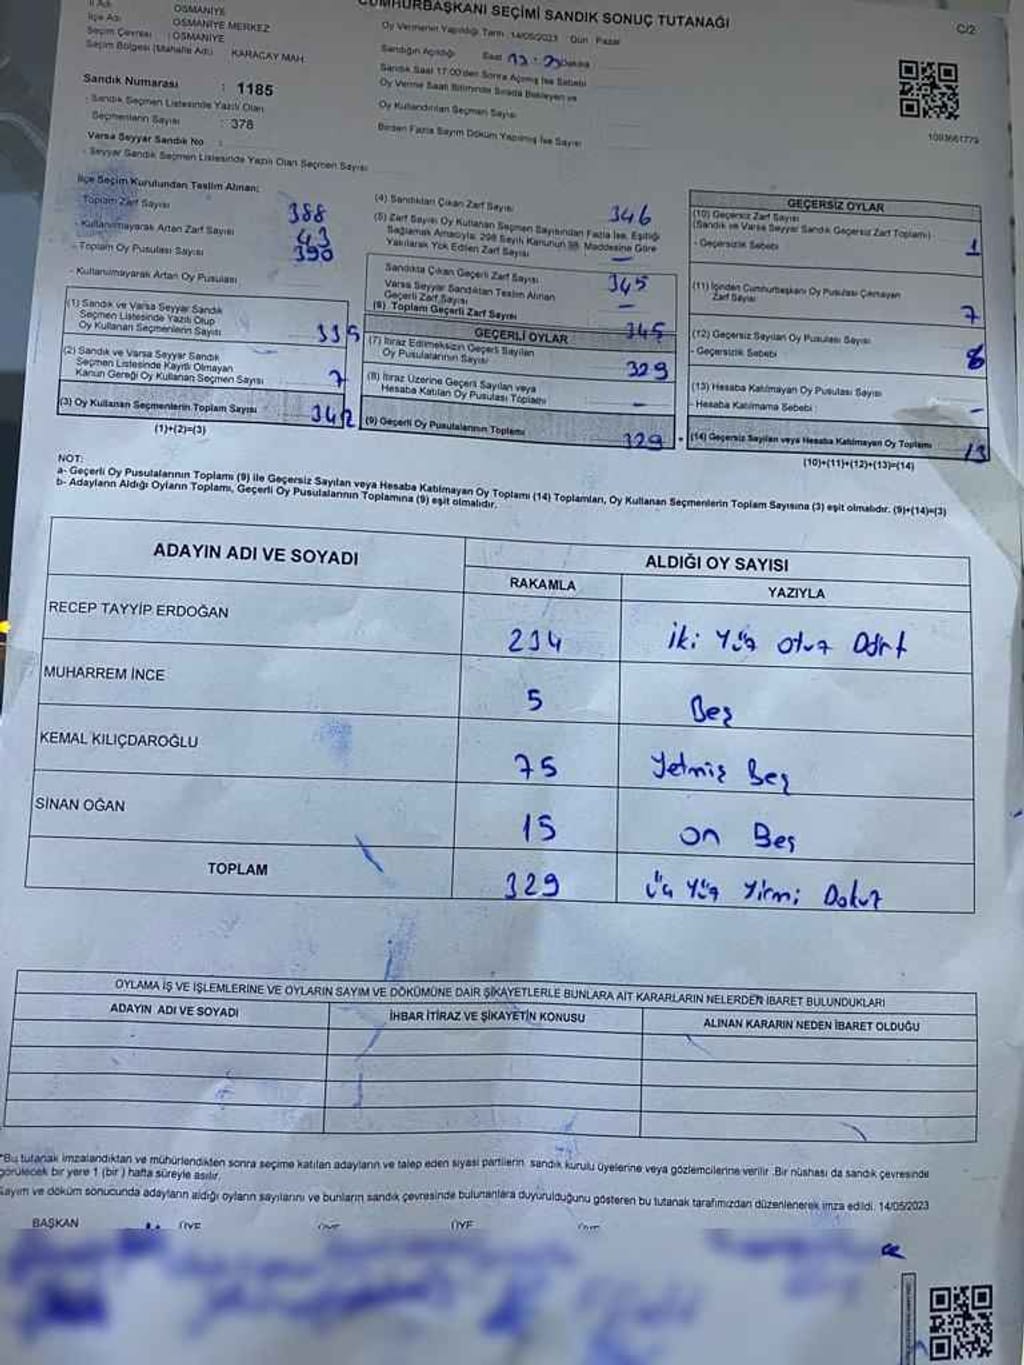 CUMHURBAŞKANI SEÇİMİ SANDIK SONUÇ TUTANAĞI
C/2
İl Adı OSMANİYE
İlçe Adı OSMANİYE MERKEZ
Seçim Çevresi : OSMANİYE
Seçim Bölgesi (Mahalle Adı) KARACAY MAH.
Sandık Numarası : 1185
- Sandık Seçmen Listesinde Yazılı Olan
Seçmenlerin Sayısı : 378
Varsa Seyyar Sandık No :
- Seyyar Sandık Seçmen Listesinde Yazılı Olan Seçmen Sayısı
Oy Vermenin Yapıldığı Tarih : 14/05/2023 Gün : Pazar
Sandığın Açıldığı Saat
Sandık Saat 17:00'den Sonra Açılmış İse Sebebi
Oy Verme Saati Bitiminde Sırada Bekleyen ve
Oy Kullandırılan Seçmen Sayısı
Birden Fazla Sayım Döküm Yapılmış İse Sayısı
İlçe Seçim Kurulundan Teslim Alınan;
- Toplam Zarf Sayısı 388
- Kullanılmayarak Artan Zarf Sayısı 43
- Toplam Oy Pusulası Sayısı 390
- Kullanılmayarak Artan Oy Pusulası
(1) Sandık ve Varsa Seyyar Sandık
Seçmen Listesinde Yazılı Olup
Oy Kullanan Seçmenlerin Sayısı 335
(2) Sandık ve Varsa Seyyar Sandık
Seçmen Listesinde Kayıtlı Olmayan
Kanun Gereği Oy Kullanan Seçmen Sayısı 7
(3) Oy Kullanan Seçmenlerin Toplam Sayısı 342
(1)+(2)=(3)
(4) Sandıktan Çıkan Zarf Sayısı 346
(5) Zarf Sayısı Oy Kullanan Seçmen Sayısından Fazla İse, Eşitliği
Sağlamak Amacıyla; 298 Sayılı Kanunun 98. Maddesine Göre
Yakılarak Yok Edilen Zarf Sayısı —
Sandıkta Çıkan Geçerli Zarf Sayısı 345
Varsa Seyyar Sandıktan Teslim Alınan
Geçerli Zarf Sayısı —
(6) Toplam Geçerli Zarf Sayısı 345
GEÇERLİ OYLAR
(7) İtiraz Edilmeksizin Geçerli Sayılan
Oy Pusulalarının Sayısı 329
(8) İtiraz Üzerine Geçerli Sayılan veya
Hesaba Katılan Oy Pusulası Toplamı —
(9) Geçerli Oy Pusulalarının Toplamı 329
GEÇERSİZ OYLAR
(10) Geçersiz Zarf Sayısı
(Sandık ve Varsa Seyyar Sandık Geçersiz Zarf Toplamı)
- Geçersizlik Sebebi 1
(11) İçinden Cumhurbaşkanı Oy Pusulası Çıkmayan
Zarf Sayısı 7
(12) Geçersiz Sayılan Oy Pusulası Sayısı
- Geçersizlik Sebebi
(13) Hesaba Katılmayan Oy Pusulası Sayısı
- Hesaba Katılmama Sebebi : —
(14) Geçersiz Sayılan veya Hesaba Katılmayan Oy Toplamı 13
(10)+(11)+(12)+(13)=(14)
NOT:
a- Geçerli Oy Pusulalarının Toplamı (9) ile Geçersiz Sayılan veya Hesaba Katılmayan Oy Toplamı (14) Toplamları, Oy Kullanan Seçmenlerin Toplam Sayısına (3) eşit olmalıdır. (9)+(14)=(3)
b- Adayların Aldığı Oyların Toplamı, Geçerli Oy Pusulalarının Toplamına (9) eşit olmalıdır.
ADAYIN ADI VE SOYADI
ALDIĞI OY SAYISI
RAKAMLA YAZIYLA
RECEP TAYYİP ERDOĞAN 234 iki yüz otuz Dört
MUHARREM İNCE 5 Beş
KEMAL KILIÇDAROĞLU 75 Yetmiş Beş
SİNAN OĞAN 15 on Beş
TOPLAM 329 üç yüz Yirmi Dokuz
OYLAMA İŞ VE İŞLEMLERİNE VE OYLARIN SAYIM VE DÖKÜMÜNE DAİR ŞİKAYETLERLE BUNLARA AİT KARARLARIN NELERDEN İBARET BULUNDUKLARI
ADAYIN ADI VE SOYADI İHBAR İTİRAZ VE ŞİKAYETİN KONUSU ALINAN KARARIN NEDEN İBARET OLDUĞU
*Bu tutanak imzalandıktan ve mühürlendikten sonra seçime katılan adayların ve talep eden siyasi partilerin sandık kurulu üyelerine veya gözlemcilerine verilir. Bir nüshası da sandık çevresinde
görülecek bir yere 1 (bir) hafta süreyle asılır.
Sayım ve döküm sonucunda adayların aldığı oyların sayılarını ve bunların sandık çevresinde bulunanlara duyurulduğunu gösteren bu tutanak tarafımızdan düzenlenerek imza edildi. 14/05/2023
BAŞKAN ÜYE ÜYE ÜYE ÜYE